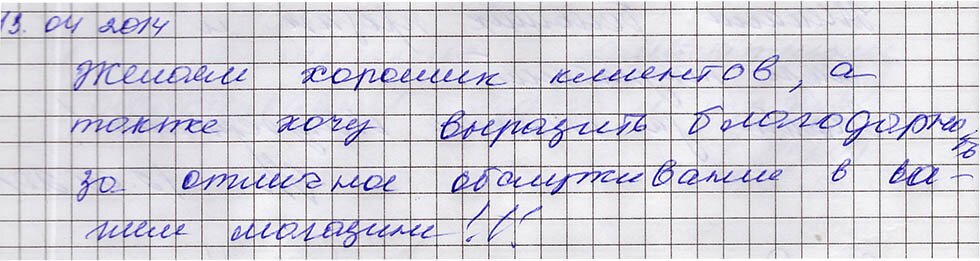 13. 04 2014
Желаем хороших клиентов, а
также хочу выразить благодарность
за отличное обслуживание в ва-
шем магазине!!!